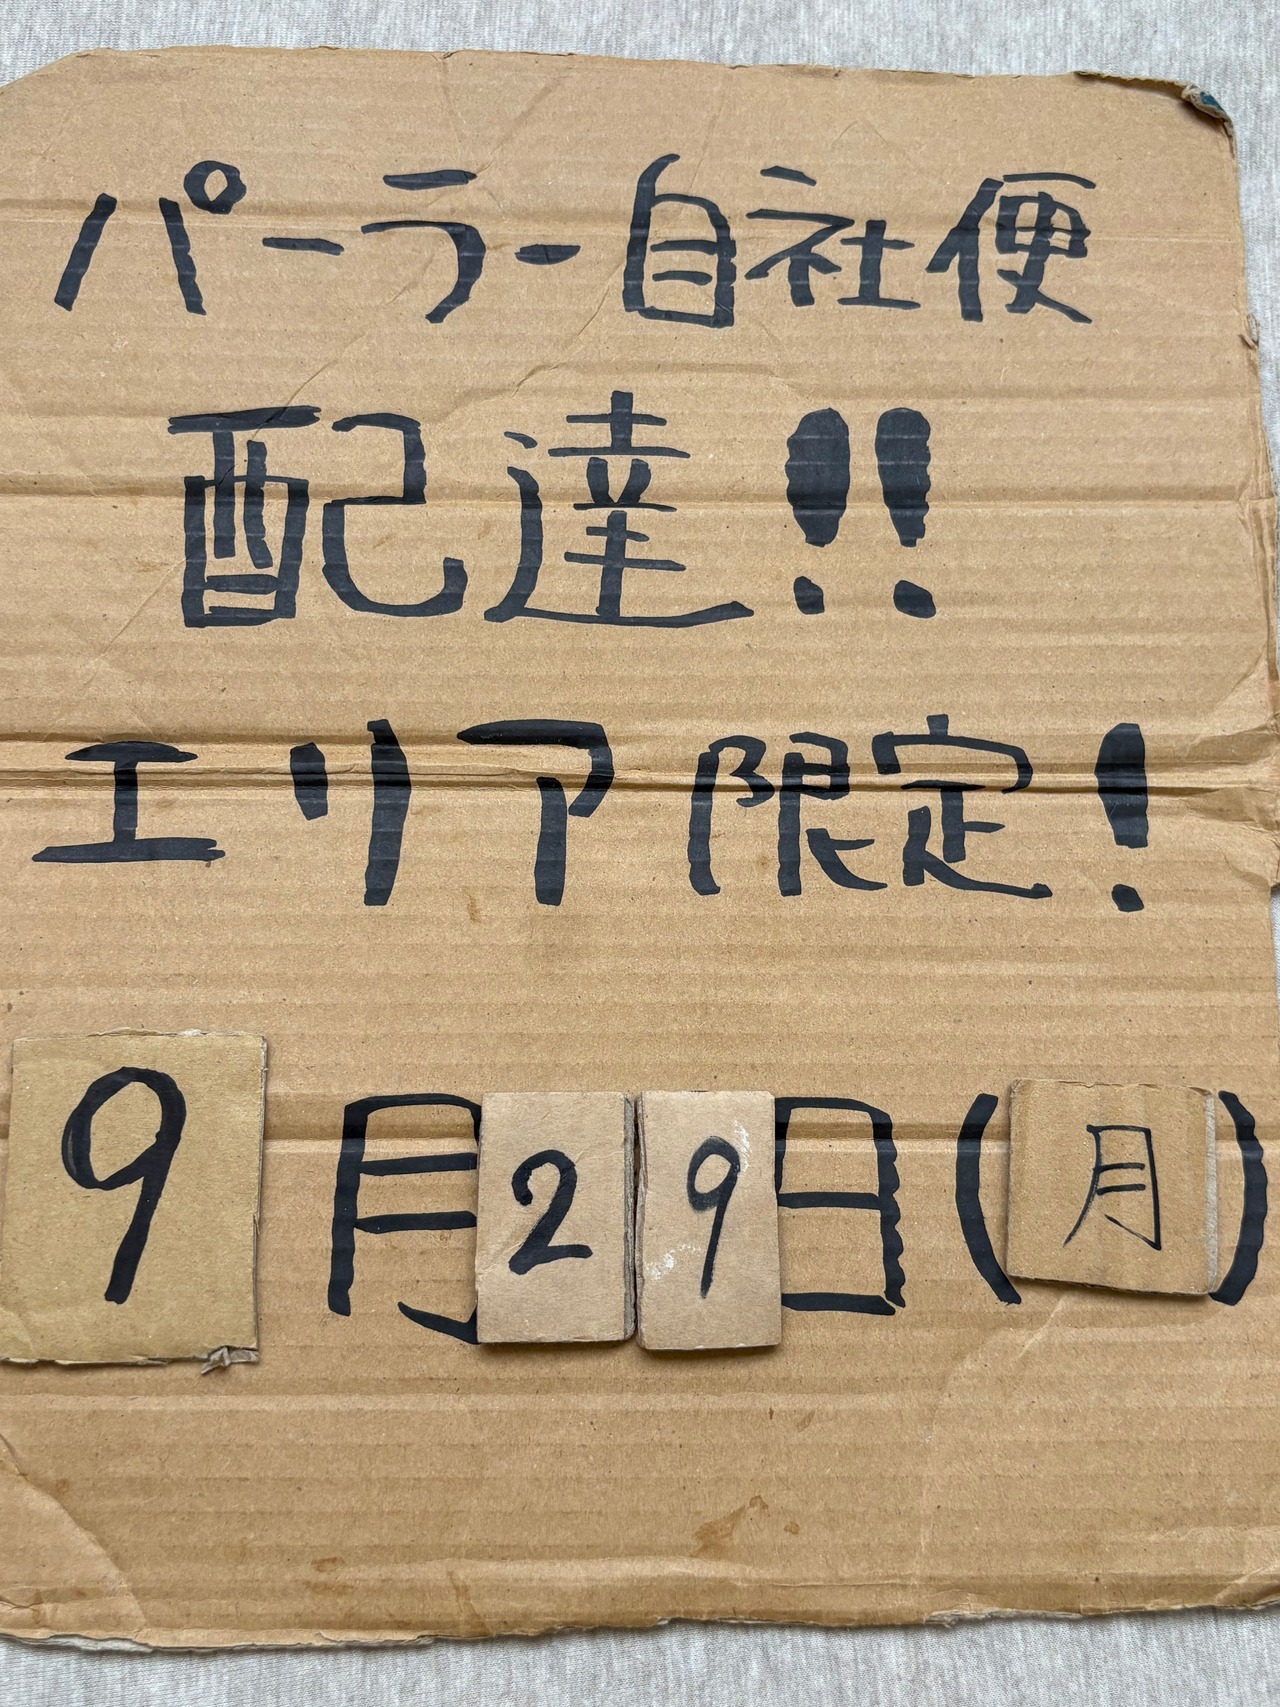 パーラー自社便
配達!!
エリア限定!
9月29日(月)